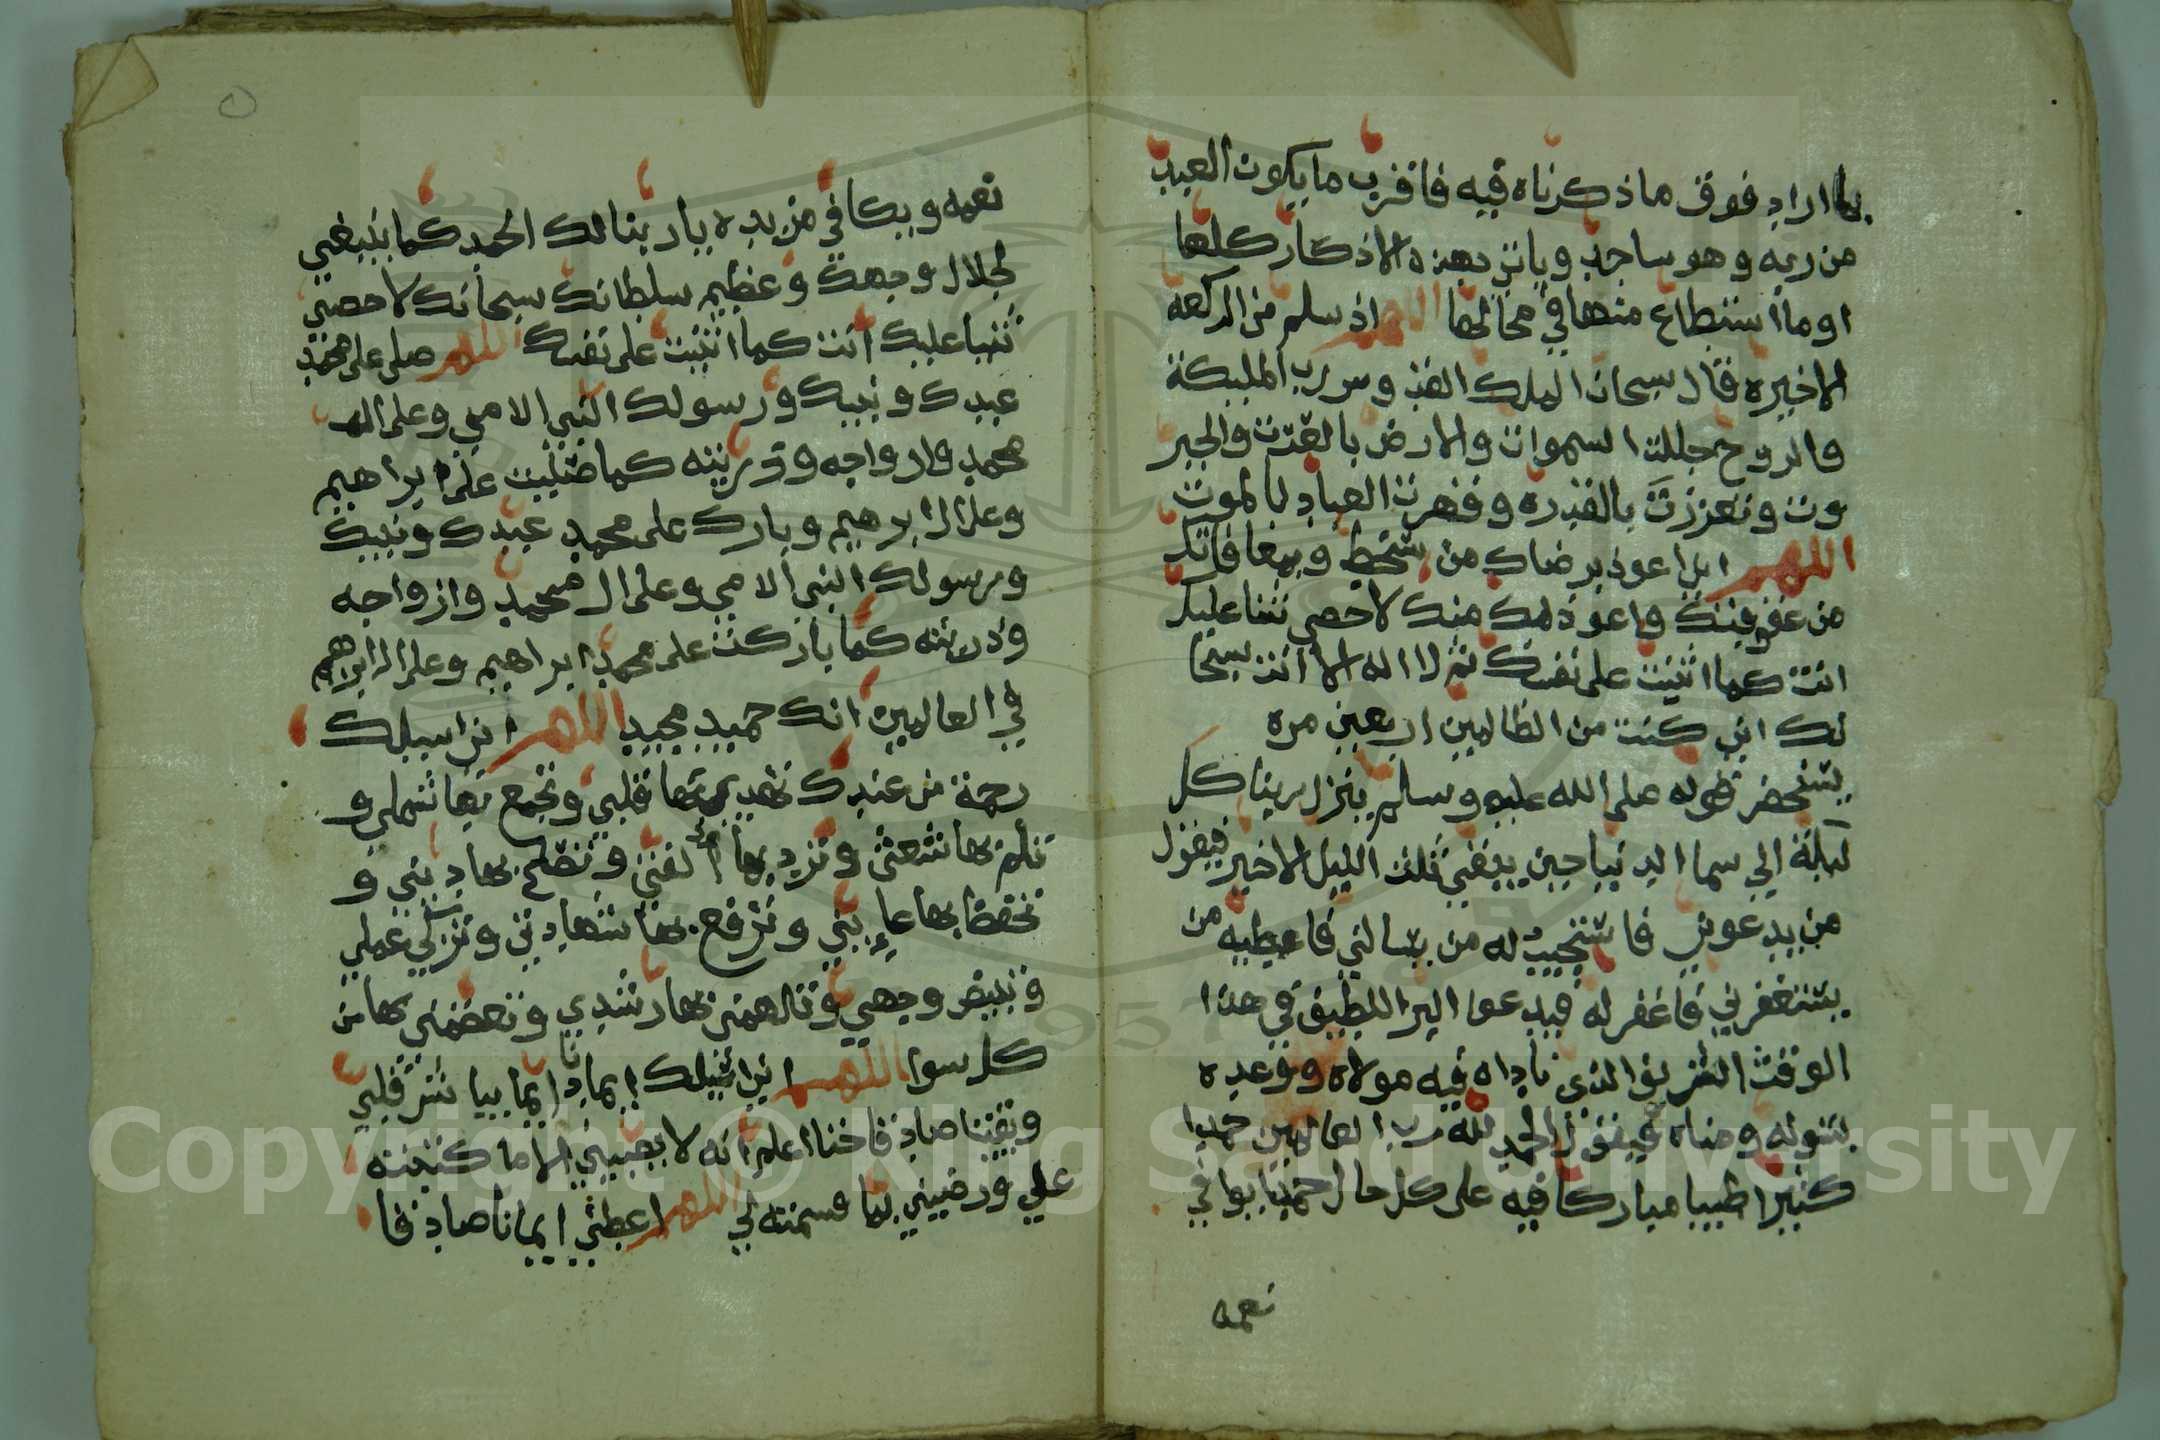 بما اراد فوق ما ذكرناه فيه فاقرب ما يكون العبد
من ربه وهو ساجد وياتي بهذه الاذكار كلها
او ما استطاع منها في محالها اللهم اذ سلم من الركعة
الاخيره قال سبحان الملك القدوس رب المليكة
والروح جللت السموات والارض بالعزت والجبر
وت وتعززت بالقدره وقهرت العباد بالموت
اللهم اني اعوذ برضاك من سخطك وبمعافاتك
من عقوبتك واعوذ بك منك لا احصي ثنا عليك
انت كما اثنيت على نفسك ثم لا اله الا انت سبحا
نك اني كنت من الظالمين اربعين مره
يستحضر قوله صلى الله عليه وسلم ينزل ربنا كل
ليلة الي سما الدنيا حين يبقي ثلث الليل الاخير فيقول
من يدعوني فاستجيب له من يسالني فاعطيه من
يستغفرني فاغفر له فيدعوا البر اللطيف في هذا
الوقت الشريف الذي ناداه فيه مولاه ووعده
بسوله ومناه فيقول الحمد لله رب العالمين حمدا
كثيرا طيبا مباركا فيه على كل حال حمدا يوافي
نعمه
نعمه ويكافي مزيده يا ربنا لك الحمد كما ينبغي
لجلال وجهك وعظيم سلطانك سبحانك لا احصي
ثنيا عليك انت كما اثنيت على نفسك اللهم صلى على محمد
عبدك ونبيك ورسولك النبي الامي وعلى ال
محمد وازواجه وذريته كما صليت على ابراهيم
وعلى ال ابرهيم وبارك على محمد عبدك ونبيك
ورسولك النبي الامي وعلى ال محمد وازواجه
وذريته كما باركت على محمد ابراهيم وعلى ال ابراهيم
في العالمين انك حميد مجيد اللهم اني اسيلك
رحمة من عندك تهدي بها قلبي وتجمع بها شملي و
تلم بها شعثي وتزيد بها الفتي وتصلح بها ديني و
تحفظ بها غايبتي وترفع بها شهادتي وتزكي عملي
وتبيض وجهي وتالهمني بها رشدي وتعصمني بها من
كل سوا اللهم اني اسيلك ايمانا دايما يباشر قلبي
ويقينا صادقا حتا اعلم انه لا يصيبني الا ما كتبته
علي ورضيني بما قسمته لي اللهم اعطني ايمانا صادقا
Copyright © King Saud University
1957